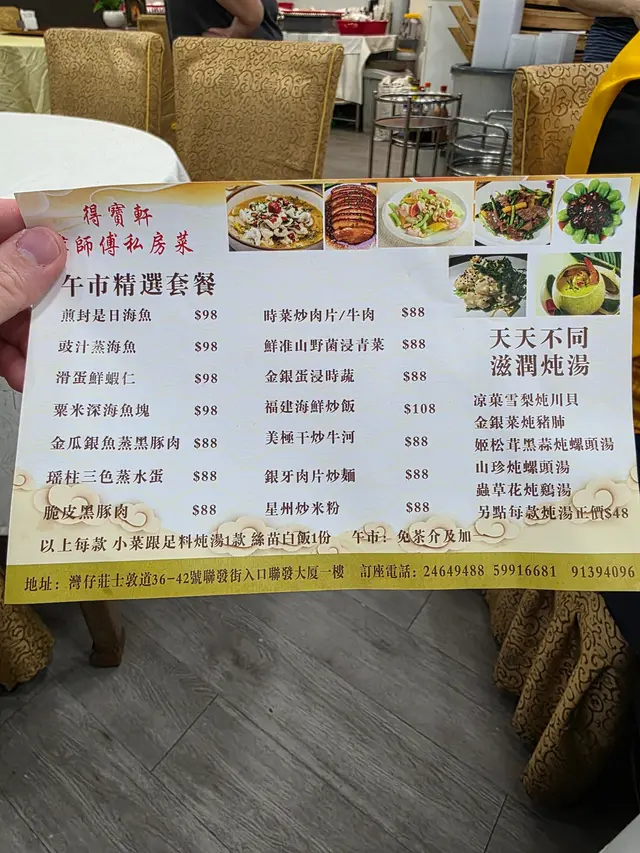 得寶軒
師傅私房菜
午市精選套餐
煎封是日海魚 $98
豉汁蒸海魚 $98
滑蛋鮮蝦仁 $98
粟米深海魚塊 $98
金瓜銀魚蒸黑豚肉 $88
瑶柱三色蒸水蛋 $88
脆皮黑豚肉 $88
時菜炒肉片/牛肉 $88
鮮淮山野菌浸青菜 $88
金銀蛋浸時蔬 $88
福建海鮮炒飯 $108
美極干炒牛河 $88
銀牙肉片炒麵 $88
星州炒米粉 $88
天天不同
滋潤炖湯
凉菓雪梨炖川貝
金銀菜炖豬肺
姬松茸黑蒜炖螺頭湯
山珍炖螺頭湯
蟲草花炖鷄湯
另點每款炖湯正價$48
以上每款 小菜跟足料炖湯1款 絲苗白飯1份 午市：免茶介及加一
地址：灣仔莊士敦道36-42號聯發街入口聯發大厦一樓 訂座電話：24649488 59916681 91394096